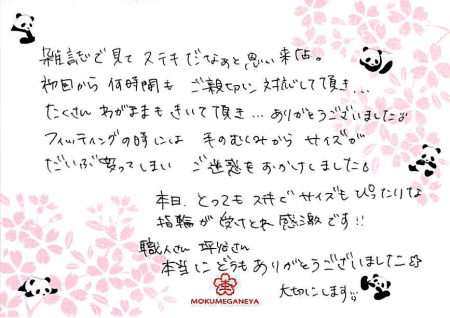 雑誌で見てステキだなぁと思い来店。
初回から何時間もご親切に対応して頂き…
たくさんわがままもきいて頂き…ありがとうございました
フィッティングの時には手のむくみからサイズが
だいぶ変ってしまいご迷惑をおかけしました
本日、とってもステキでサイズもぴったりな
指輪が受けとれ感激です!!
職人さん 坪谷さん
本当にどうもありがとうございました
大切にします
MOKUMEGANEYA